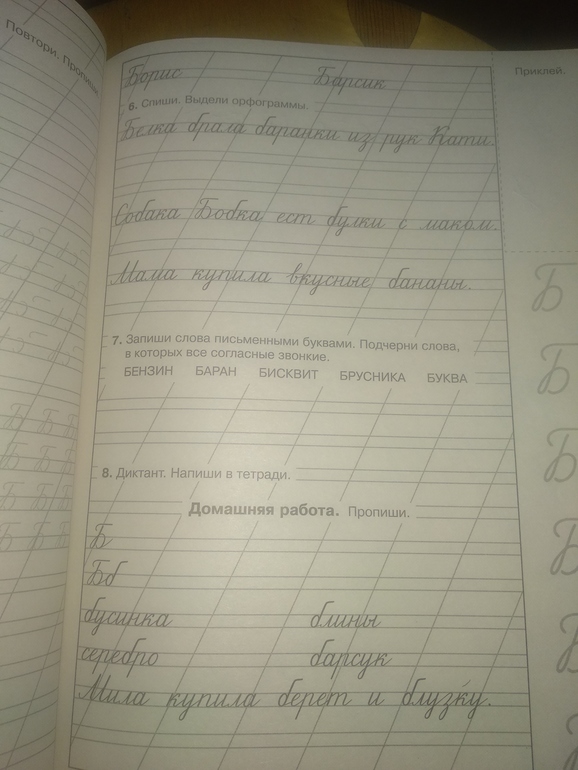 Повтори. Пропиши
Борис Барсик
Приклей.
6. Спиши. Выдели орфограммы.
Белка брала баранки из рук Кати.
Собака Бобка ест булки с маком.
Мама купила вкусные бананы.
7. Запиши слова письменными буквами. Подчерни слова,
в которых все согласные звонкие.
БЕНЗИН БАРАН БИСКВИТ БРУСНИКА БУКВА
8. Диктант. Напиши в тетради.
Домашняя работа. Пропиши.
Б
Бб
бусинка блины
серебро барсук
Мила купила берет и блузку.
Б
Б
Б
Б
Б